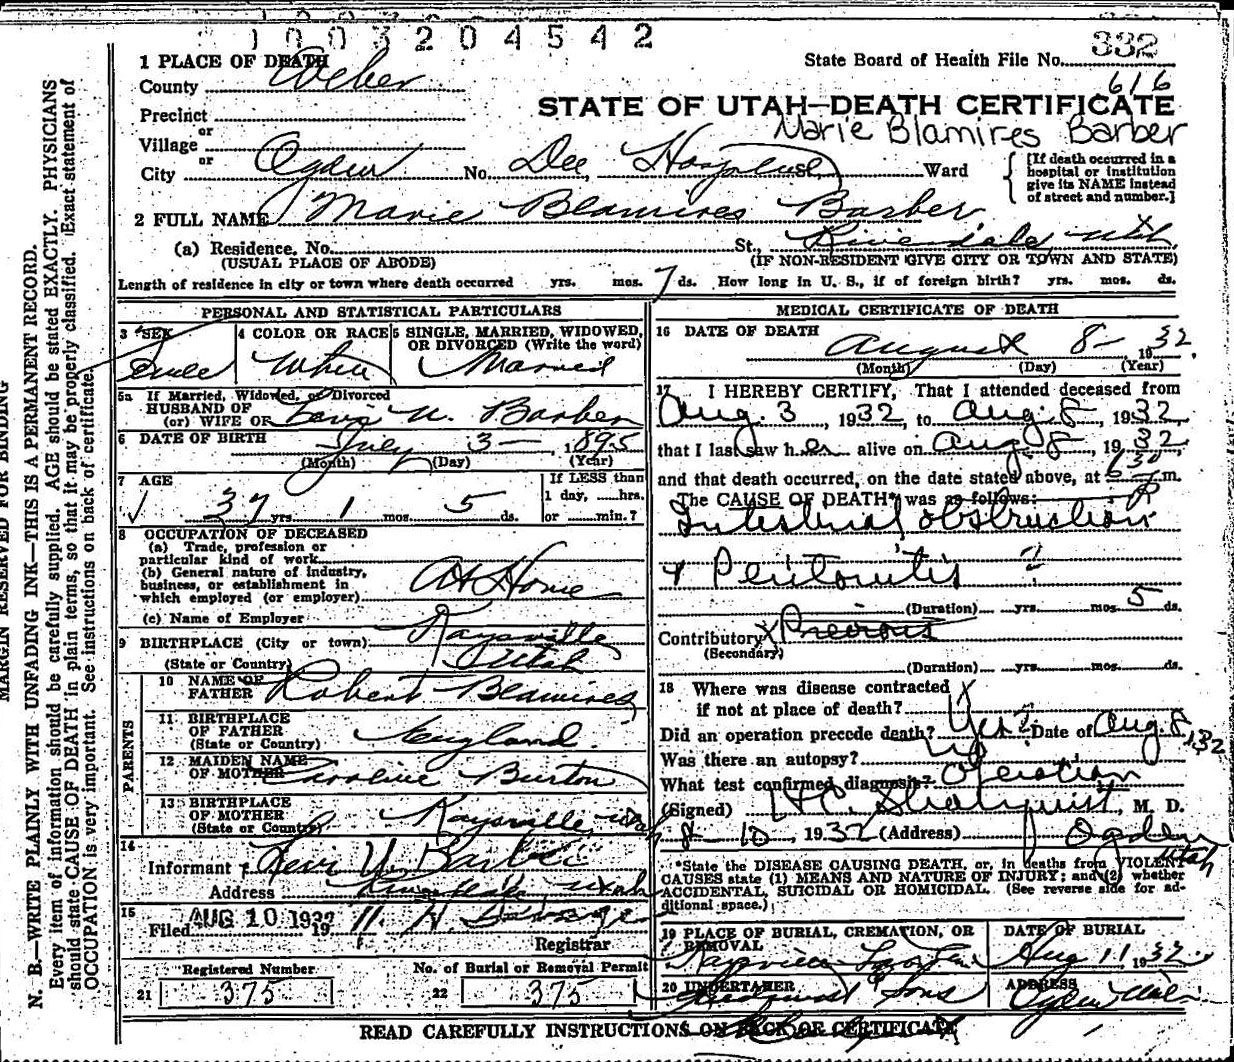 1 0 0 3 2 0 4 5 4 2
332
1 PLACE OF DEATH
State Board of Health File No.
County Weber
616
STATE OF UTAH—DEATH CERTIFICATE
Precinct
Marie Blamires Barber
or
Village
or
City Ogden No. Dee Hospital St., Ward
[If death occurred in a hospital or institution give its NAME instead of street and number.]
2 FULL NAME Marie Blamires Barber
(a) Residence. No. St., Riverdale, Utah
(USUAL PLACE OF ABODE) (IF NON-RESIDENT GIVE CITY OR TOWN AND STATE)
Length of residence in city or town where death occurred yrs. mos. 7 ds. How long in U. S., if of foreign birth? yrs. mos. ds.
PERSONAL AND STATISTICAL PARTICULARS
3 SEX
4 COLOR OR RACE
5 SINGLE, MARRIED, WIDOWED, OR DIVORCED (Write the word)
White Married
5a If Married, Widowed, or Divorced
HUSBAND OF
(or) WIFE OF Levi U. Barber
6 DATE OF BIRTH July 3— 1895
(Month) (Day) (Year)
7 AGE
If LESS than
1 day, ......hrs.
or ......min.?
37 yrs. 1 mos. 5 ds.
8 OCCUPATION OF DECEASED
(a) Trade, profession or particular kind of work
(b) General nature of industry, business, or establishment in which employed (or employer)
At Home
(c) Name of Employer
9 BIRTHPLACE (City or town) Kaysville
(State or Country) Utah
PARENTS
10 NAME OF FATHER Robert Blamires
11 BIRTHPLACE OF FATHER (State or Country) England.
12 MAIDEN NAME OF MOTHER Caroline Burton
13 BIRTHPLACE OF MOTHER (State or Country) Kaysville, Utah
14
Informant Levi U. Barber
Address Riverdale Utah
15
Filed AUG 10 1932 19
Registrar
Registered Number
21 375
No. of Burial or Removal Permit
22 375
MEDICAL CERTIFICATE OF DEATH
16 DATE OF DEATH August 8— 1932
(Month) (Day) (Year)
17 I HEREBY CERTIFY, That I attended deceased from
Aug. 3, 1932, to Aug. 8, 1932,
that I last saw her alive on Aug 8, 1932,
and that death occurred, on the date stated above, at 630 P m.
The CAUSE OF DEATH* was as follows:
Intestinal obstruction
& Peritonitis ?
(Duration) yrs. mos. 5 ds.
Contributory
(Secondary)
(Duration) yrs. mos. ds.
18 Where was disease contracted
if not at place of death?
Did an operation precede death? Yes Date of Aug. 8, 32
Was there an autopsy? no
What test confirmed diagnosis? Operation
(Signed) M. D.
8-10, 1932 (Address) Ogden Utah
*State the DISEASE CAUSING DEATH, or, in deaths from VIOLENT CAUSES state (1) MEANS AND NATURE OF INJURY; and (2) whether ACCIDENTAL, SUICIDAL OR HOMICIDAL. (See reverse side for additional space.)
19 PLACE OF BURIAL, CREMATION, OR REMOVAL
DATE OF BURIAL
Aug 11 1932
20 UNDERTAKER
& Sons
ADDRESS
Ogden Utah
READ CAREFULLY INSTRUCTIONS ON BACK OF CERTIFICATE
MARGIN RESERVED FOR BINDING
N. B.—WRITE PLAINLY WITH UNFADING INK—THIS IS A PERMANENT RECORD.
Every item of information should be carefully supplied. AGE should be stated EXACTLY. PHYSICIANS
should state CAUSE OF DEATH in plain terms, so that it may be properly classified. Exact statement of
OCCUPATION is very important. See instructions on back of certificate.